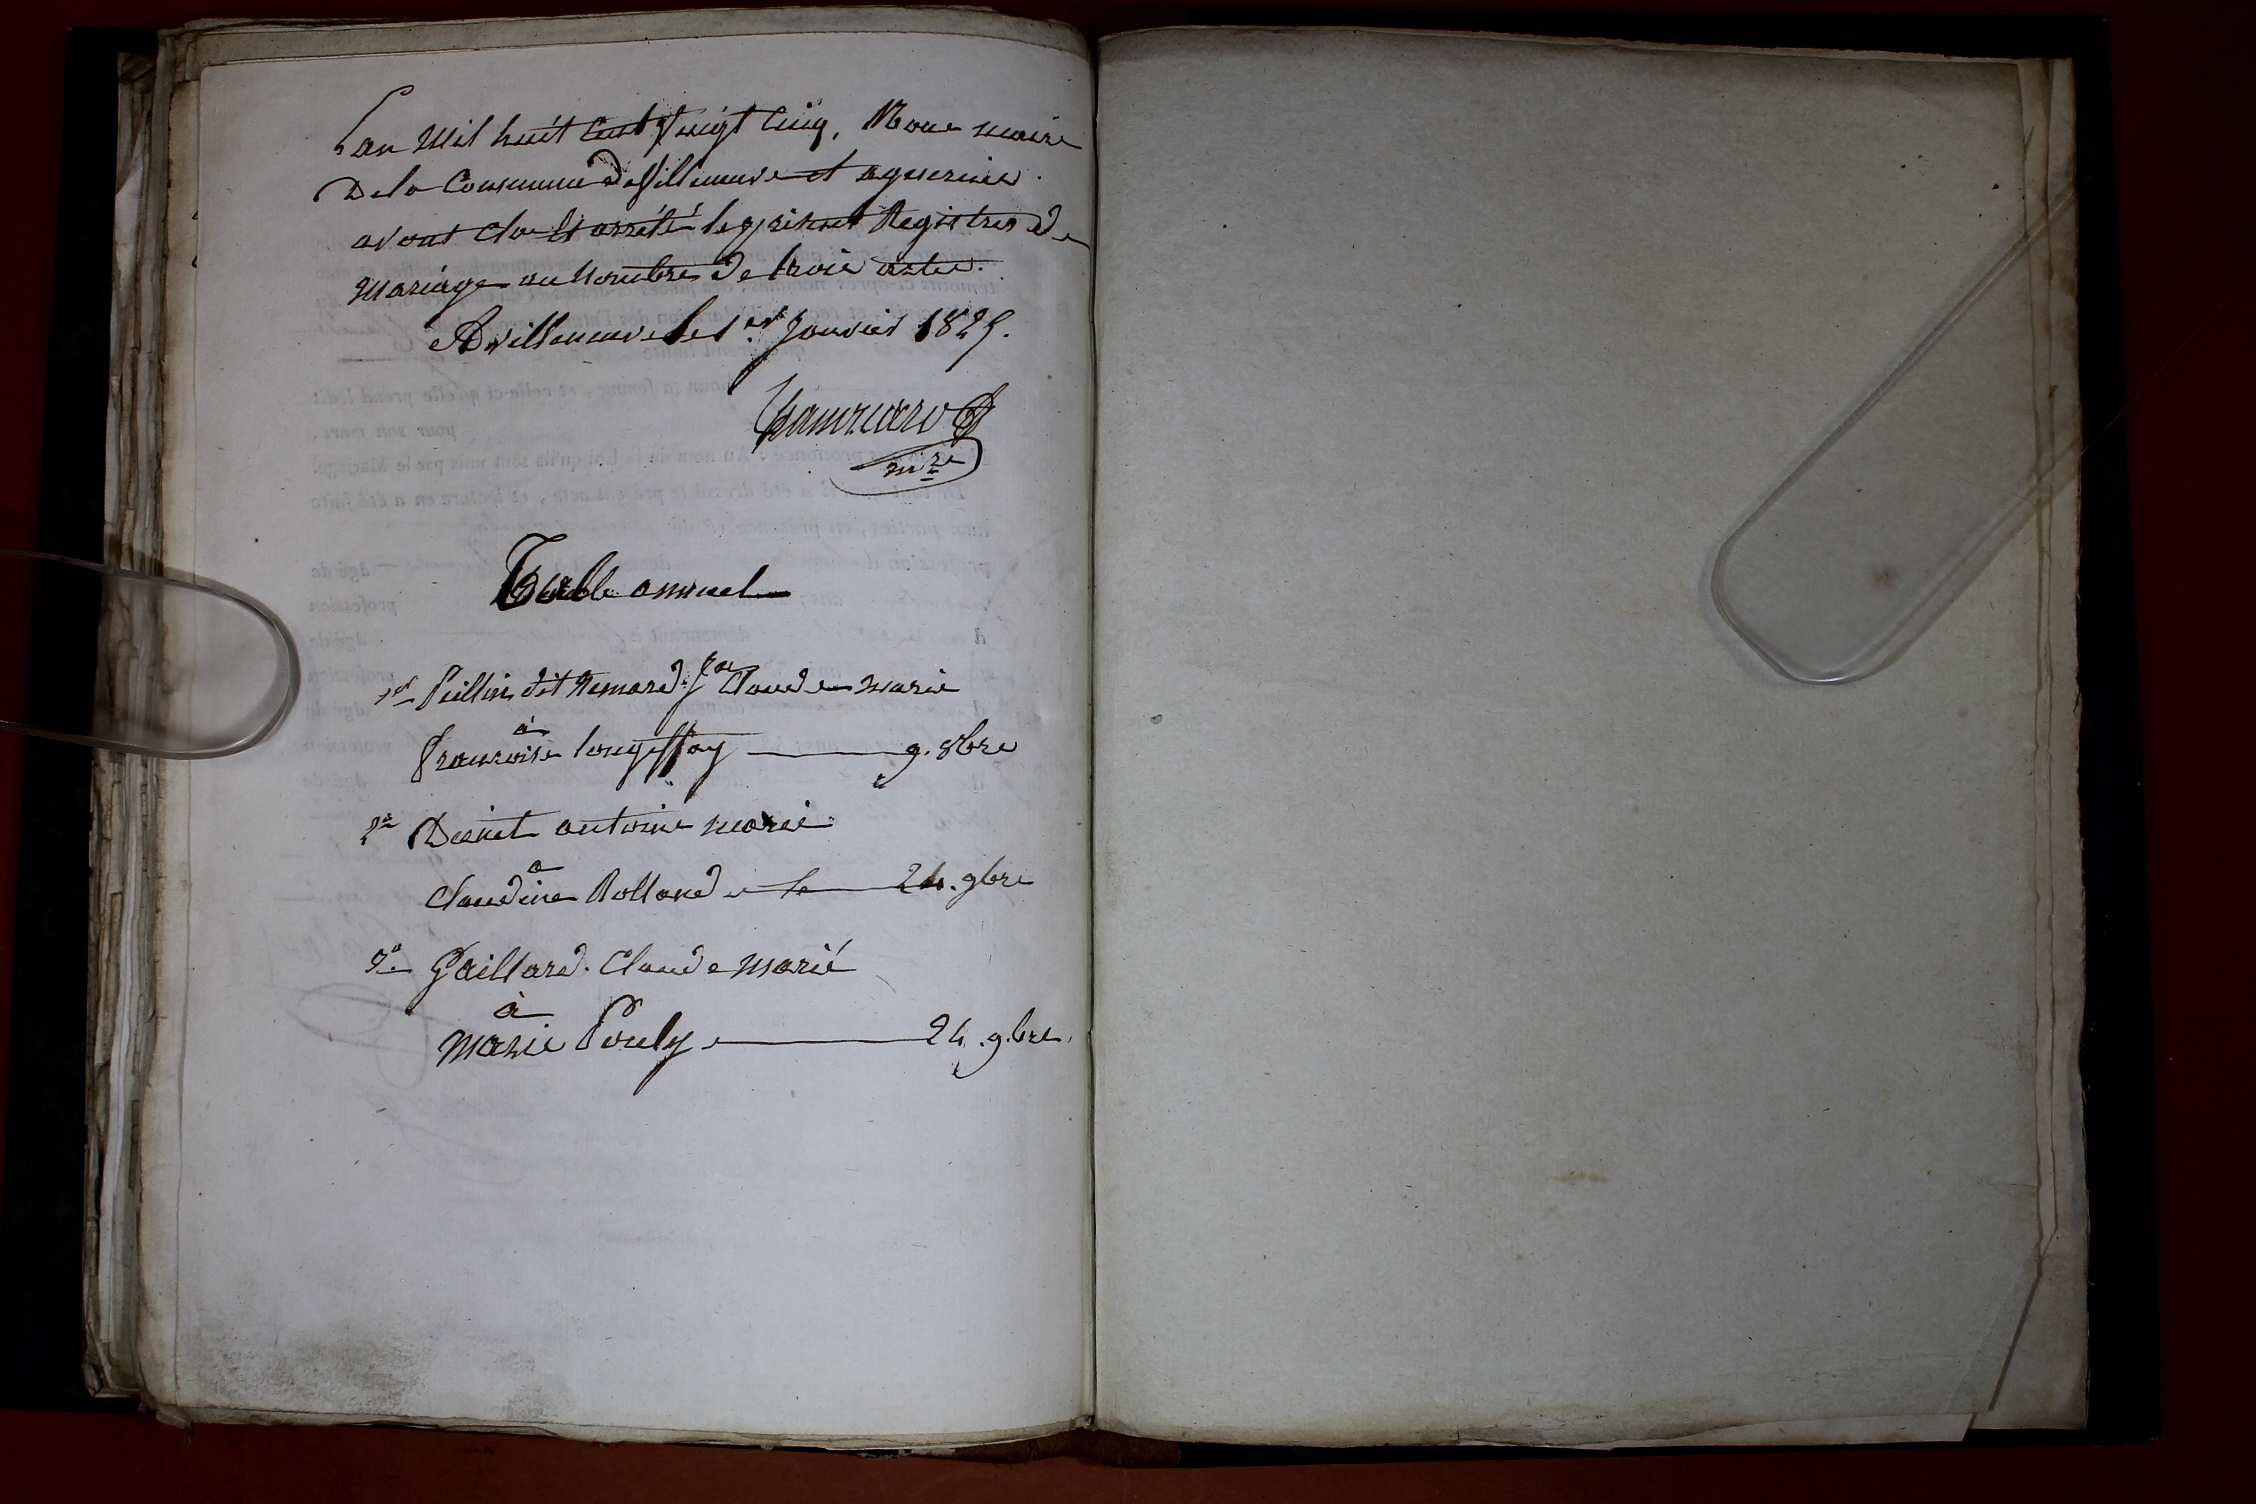 L'an mil huit cent vingt cinq, Nous maire
De la Commune de Villeneuve et agnerine
avons clos et arrété le présent Registres de
mariage au nombre de trois actes.
A villeneuve le 1er Janvier 1825.
mre
Table annuel
1er Pillin dit Remond Jn Claude marié
à
françoise longefay 9. 8bre
2e antoine marié
à
Claudine Rolland le 24. 9bre
3e Gaillard. Claude marié
à
marie Pouly 24. 9.bre